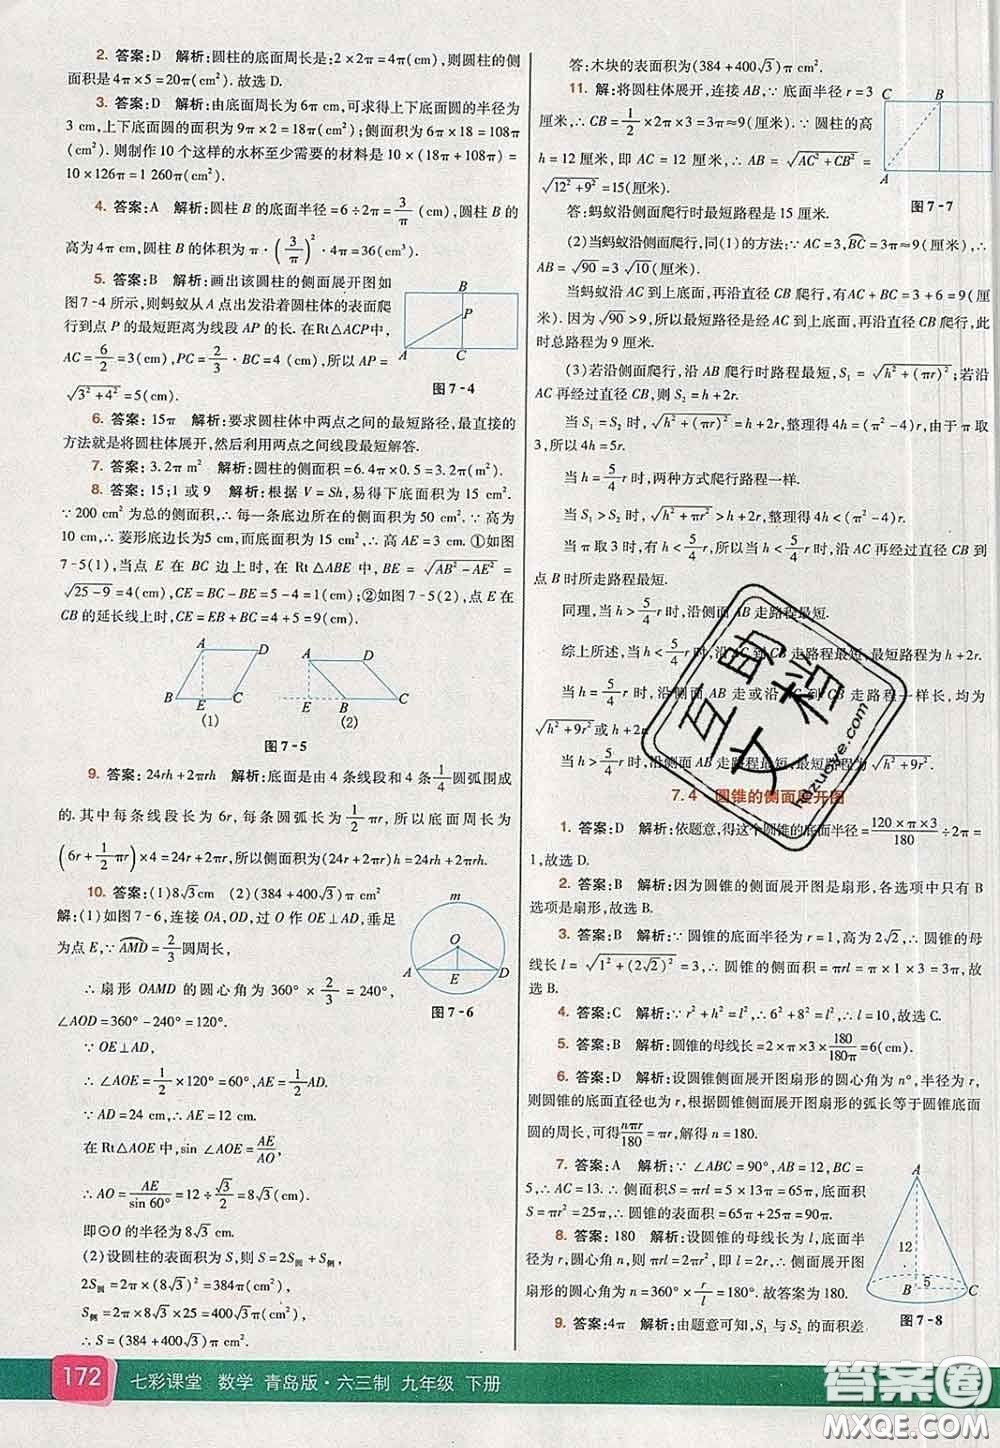 2. 答案:D　解析:圆柱的底面周长是:2×2×π=4π(cm),则圆柱的侧
面积是4π×5=20π(cm²).故选 D.
3. 答案:D　解析:由底面周长为6π,可求得上下底面圆的半径为
3 cm,上下底面圆的面积为 9π×2=18π(cm²);侧面积为 6π×18=108π
(cm²).则制作 10 个这样的水杯至少需要的材料是 10×(18π+108π)=
10×126π=1 260π(cm²).
4. 答案:A　解析:圆柱 B 的底面半径=6÷2π=3/π(cm),圆柱 B 的
高为4π cm,圆柱 B 的体积为 π·(3/π)²·4π=36(cm³).
5. 答案:B　解析:画出该圆柱的侧面展开图如
图 7-4 所示,则蚂蚁从 A 点出发沿着圆柱体的表面爬
行到点 P 的最短距离为线段 AP 的长. 在 Rt△ACP中,
AC=6/2=3(cm),PC=2/3·BC=4(cm),所以 AP=
√(3²+4²)=5(cm).
B
P
A
C
图 7-4
6. 答案:15π　解析:要求圆柱体中两点之间的最短路径,最直接的
方法就是将圆柱体展开,然后利用两点之间线段最短解答.
7. 答案:3.2π m²　解析:圆柱的侧面积=6.4π×0.5=3.2π(m²).
8. 答案:15;1 或 9　解析:根据 V=Sh,易得下底面积为 15 cm².
∵200 cm² 为总的侧面积,∴每一条底边所在的侧面积为 50 cm². ∵高为
10 cm,∴菱形底边长为5 cm,而底面积为 15 cm²,∴高 AE=3 cm. ①如图
7-5(1),当点 E 在 BC 边上时,在 Rt△ABE 中,BE=√(AB²-AE²)=
√(25-9)=4(cm),CE=BC-BE=5-4=1(cm);②如图7-5(2),点 E 在
CB 的延长线上时,CE=EB+BC=4+5=9(cm).
A
D
B
E
C
(1)
A
D
E
B
C
(2)
图 7-5
9. 答案:24rh+2πrh　解析:底面是由 4 条线段和 4 条1/4圆弧围成
的. 其中每条线段长为 6r,每条圆弧长为1/2πr,所以底面周长为
(6r+1/2πr)×4=24r+2πr,所以侧面积为(24r+2πr)h=24rh+2πrh.
10. 答案:(1)8√3cm　(2)(384+400√3)π cm²
解:(1)如图 7-6,连接 OA,OD,过 O 作 OE⊥AD,垂足
为点 E,∵AMD=2/3圆周长,
∴扇形 OAMD 的圆心角为 360°×2/3=240°,
∠AOD=360°-240°=120°.
∵OE⊥AD,
∴∠AOE=1/2×120°=60°,AE=1/2AD.
∵AD=24 cm,∴AE=12 cm.
在 Rt△AOE 中,sin∠AOE=AE/AO,
∴AO=AE/sin 60°=12÷√3/2=8√3(cm).
即⊙O 的半径为 8√3 cm.
(2)设圆柱的表面积为 S,则 S=2S圆+S侧.
2S圆=2π×(8√3)²=384π(cm²),
S侧=2π×8√3×25=400√3π(cm²),
∴S=(384+400√3)π(cm²),
m
O
A
E
D
图 7-6
答:木块的表面积为(384+400√3)π cm².
11. 解:(1)将圆柱体展开,连接 AB,∵底面半径 r=3
厘米,∴CB=1/2×2π×3=3π≈9(厘米). ∵圆柱的高
h=12 厘米,即 AC=12 厘米,∴AB=√(AC²+CB²)=
√(12²+9²)=15(厘米).
答:蚂蚁沿侧面爬行时最短路程是 15 厘米.
C
B
A
图 7-7
(2)当蚂蚁沿侧面爬行,同(1)的方法:∵AC=3,BC=3π≈9(厘米),
∴AB=√90=3√10(厘米).
当蚂蚁沿 AC 到上底面,再沿直径 CB 爬行,有 AC+CB=3+6=9(厘
米). 因为√90>9,所以最短路程是经 AC 到上底面,再沿直径 CB 爬行,此
时总路程为 9 厘米.
(3)若沿侧面爬行,沿 AB 爬行时路程最短,S₁=√(h²+(πr)²);若沿
AC 再经过直径 CB,则 S₂=h+2r.
当 S₁=S₂ 时,√(h²+(πr)²)=h+2r,整理得 4h=(π²-4)r,由于 π 取
3,所以 4h=5r.
当 h=5/4r 时,两种方式爬行路程一样.
当 S₁>S₂ 时,√(h²+πr²)>h+2r,整理得 4h<(π²-4)r.
当 π 取 3 时,有 h<5/4r,所以当 h<5/4r 时,沿 AC 再经过直径 CB 到
点 B 时所走路程最短.
同理,当 h>5/4r 时,沿侧面 AB 走路程最短.
综上所述,当 h<5/4r 时,沿 走路程最短,最短路程为 h+2r.
当 h=5/4r 时,沿侧面 AB 走或沿 走路程一样长,均为
√(h²+9r²)或 h+2r.
当 h>5/4r 时,沿侧面 AB 走路程最短,最短路程为√(h²+9r²).
7.4　圆锥的侧面展开图
1. 答案:D　解析:依题意,得这个圆锥的底面半径=120×π×3/180÷2π=
1,故选 D.
2. 答案:B　解析:因为圆锥的侧面展开图是扇形,各选项中只有 B
选项是扇形,故选 B.
3. 答案:B　解析:∵圆锥的底面半径为 r=1,高为 2√2,∴圆锥的母
线长 l=√(1²+(2√2)²)=3,∴圆锥的侧面积=πrl=π×1×3=3π,故
选 B.
4. 答案:C　解析:∵r²+h²=l²,∴6²+8²=l²,∴l=10,故选 C.
5. 答案:B　解析:圆锥的母线长=2×π×3×180/180π=6(cm).
6. 答案:D　解析:设圆锥侧面展开图扇形的圆心角为 n°,半径为 r,
则圆锥的底面直径也为 r,根据圆锥侧面展开图扇形的弧长等于圆锥底面
圆的周长,可得nπr/180=πr,解得 n=180.
7. 答案:A　解析:∵∠ABC=90°,AB=12,BC=
5,∴AC=13. ∴侧面积 S=πrl=5×13π=65π,底面积
S=πr²=25π,∴圆锥的表面积=65π+25π=90π.
8. 答案:180　解析:设圆锥的母线长为 l,底面半径
为 r,圆心角为 n,则 πrl=2πr²,∴l=2r.∴侧面展开图
扇形的圆心角 n=360°×r/l=180°. 故答案为 180.
A
12
5
B
C
图 7-8
9. 答案:4π　解析:由题意可知,S₁ 与 S₂ 的面积差
互助文档
hzuoye.com
172　七彩课堂　数学　青岛版·六三制　九年级　下册
答案圈
MXQE.COM